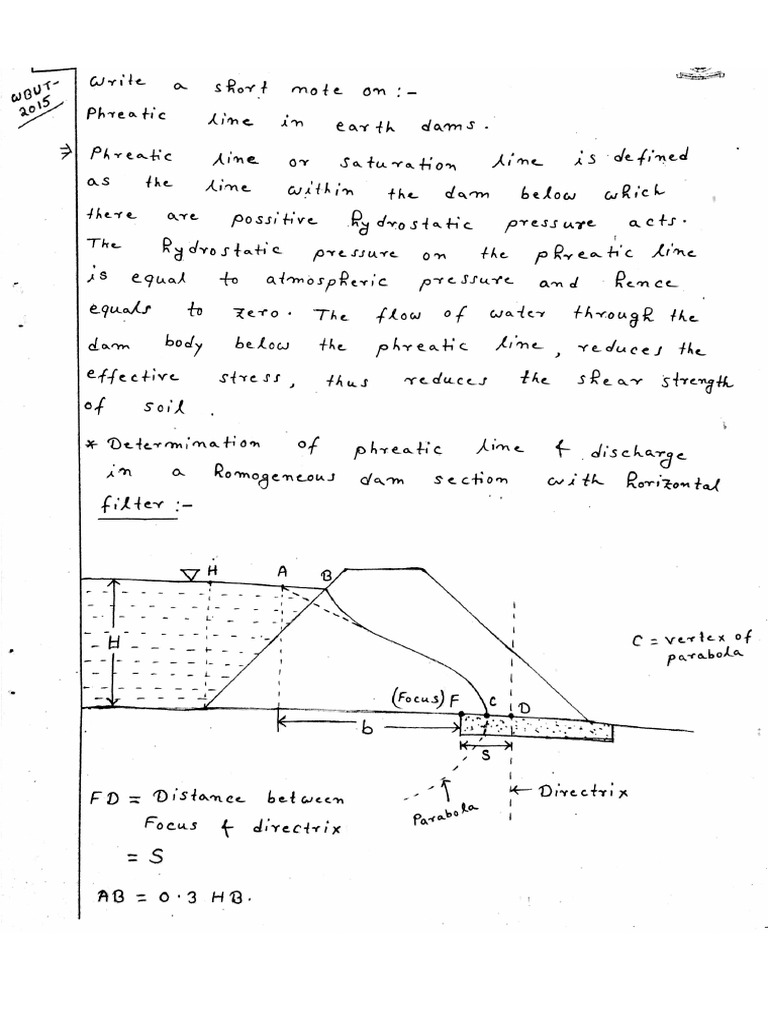 WBUT-
2015
Write a short note on :-
Phreatic line in earth dams.
⇒ Phreatic line or saturation line is defined
as the line within the dam below which
there are possitive hydrostatic pressure acts.
The hydrostatic pressure on the phreatic line
is equal to atmospheric pressure and hence
equals to zero. The flow of water through the
dam body below the phreatic line, reduces the
effective stress, thus reduces the shear strength
of soil.
* Determination of phreatic line & discharge
in a homogeneous dam section with horizontal
filter :-
H A B
H
C = vertex of
parabola
(Focus) F C D
b
S
Parabola
← Directrix
FD = Distance between
Focus & directrix
= S
AB = 0.3 HB.